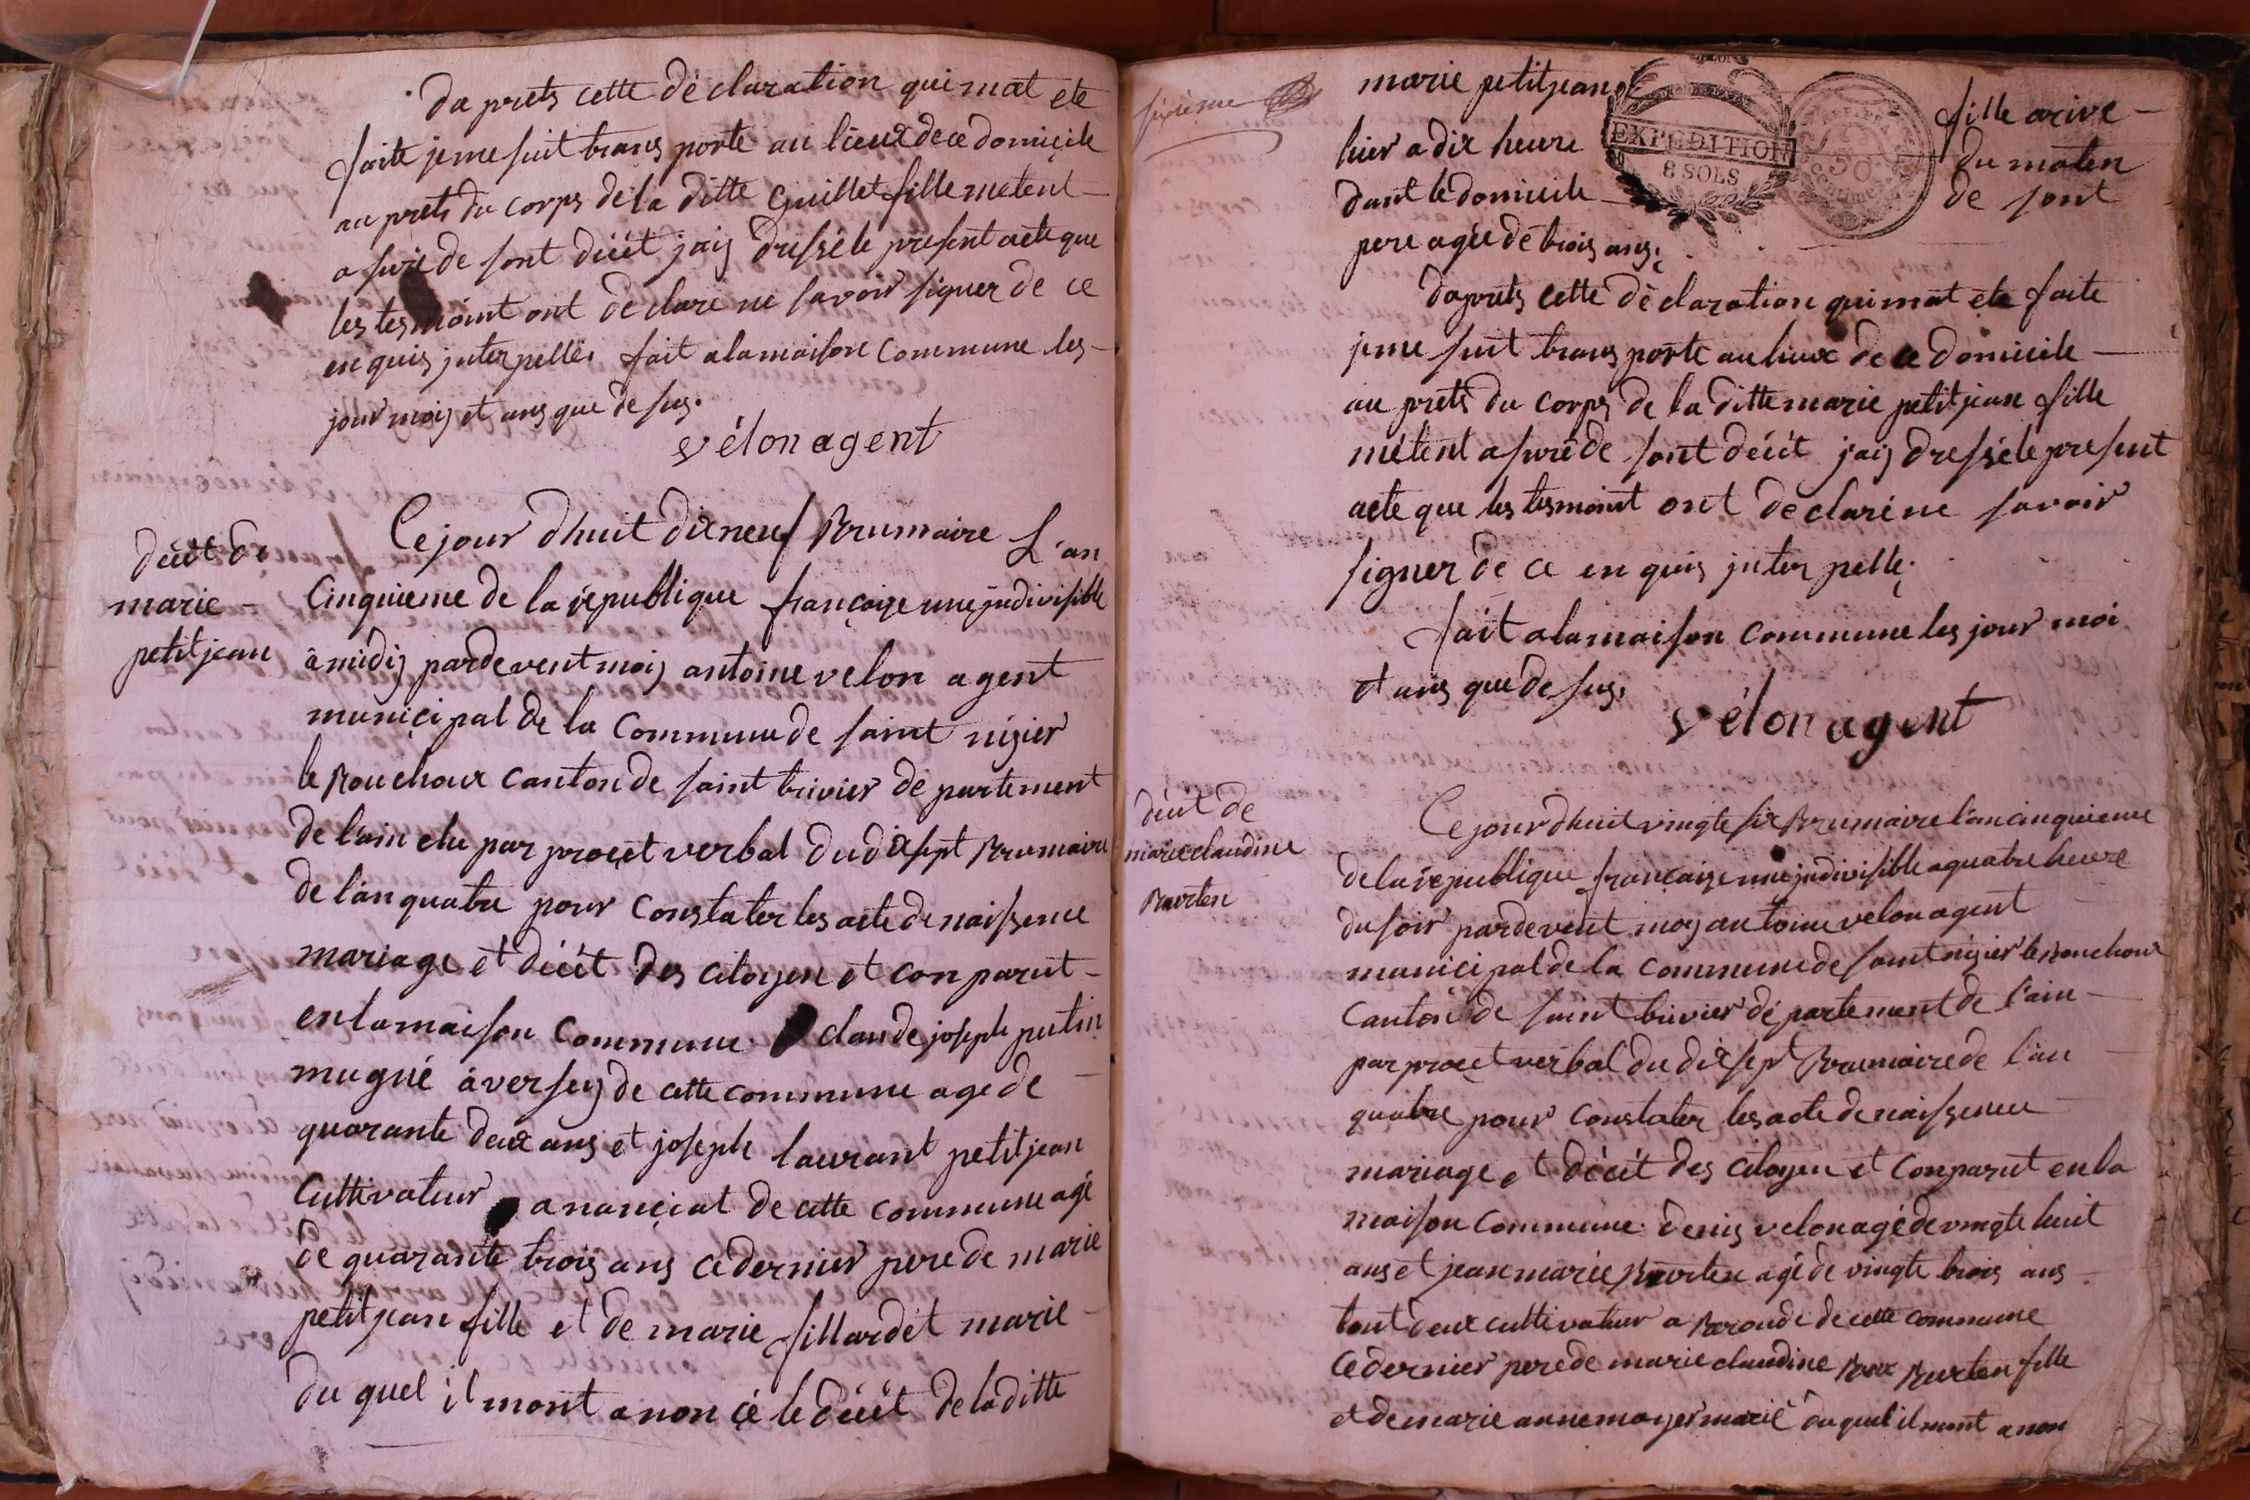 daprets cette déclaration qui mat ete
faite je me suit trans porte au lieux de ce domicile
au prets du corps de la ditte Guillet fille metent
a suré de sont décèt jaij dressé le present acte que
les tesmoint ont déclare ne savoir signer de ce
en quis jnterpelle. fait a la maison commune les
jour mois et ans que desus.
vélon agent
décèt de
marie
petitjean
Ce jour dhuit dixneuf Brumaire L'an
Cinquieme de la république françoise une jndivisible
a midij pardevent moij antoine velon agent
municipal de la Commune de saint nizier
le Bouchoux canton de saint trivier département
de l'ain elu par procet verbal du dixsept Brumaire
de l'an quatre pour Constater les acte de naissence
mariage et décèt des citoyen et conparut
en la maison Commune claude joseph
mugné a versey de cette commune age de
quarante deux ans et joseph laurant petitjean
Cultivateur a nanciat de cette commune agé
de quarante trois ans ce dernier pere de marie
petitjean fille et de marie fillardet marie
du quel il mont anoncé le décèt de la ditte
sixieme
marie petitjean fille arive
hier a dix heure du maten
dant le domicile de sont
pere agée de trois ans.
EXPEDITION
8 SOLS
50
daprets cette déclaration qui mat ete faite
je me suit trans porte au lieux de ce domicile
au prets du corps de la ditte marie petitjean fille
métent a suré de sont décèt jaij dressé le present
acte que les tesmoint ont déclaré ne savoir
signer de ce en quis jnter pelle.
fait a la maison commune les jour moi
et ans que desus.
vélon agent
décèt de
marie claudine
Burten
Ce jour dhuit vingte six Brumaire l'an cinquieme
de la république françoise une jndivisible a quatre heure
du soir pardevent moy antoine velon agent
municipal de la commune de saint nizier le Bouchoux
Canton de saint trivier département de l'ain
par procet verbal du dixsept Brumaire de l'an
quatre pour constater les acte de naissence
mariage et décèt des citoyen et conparut en la
maison Commune denis velon agé de vingte huit
ans et jean marie Burten agé de vingte trois ans
tout deux cultivateur a de cette commune
ce dernier pere de marie claudine Burten fille
et de marie anne moyer marié du quel il mont anon